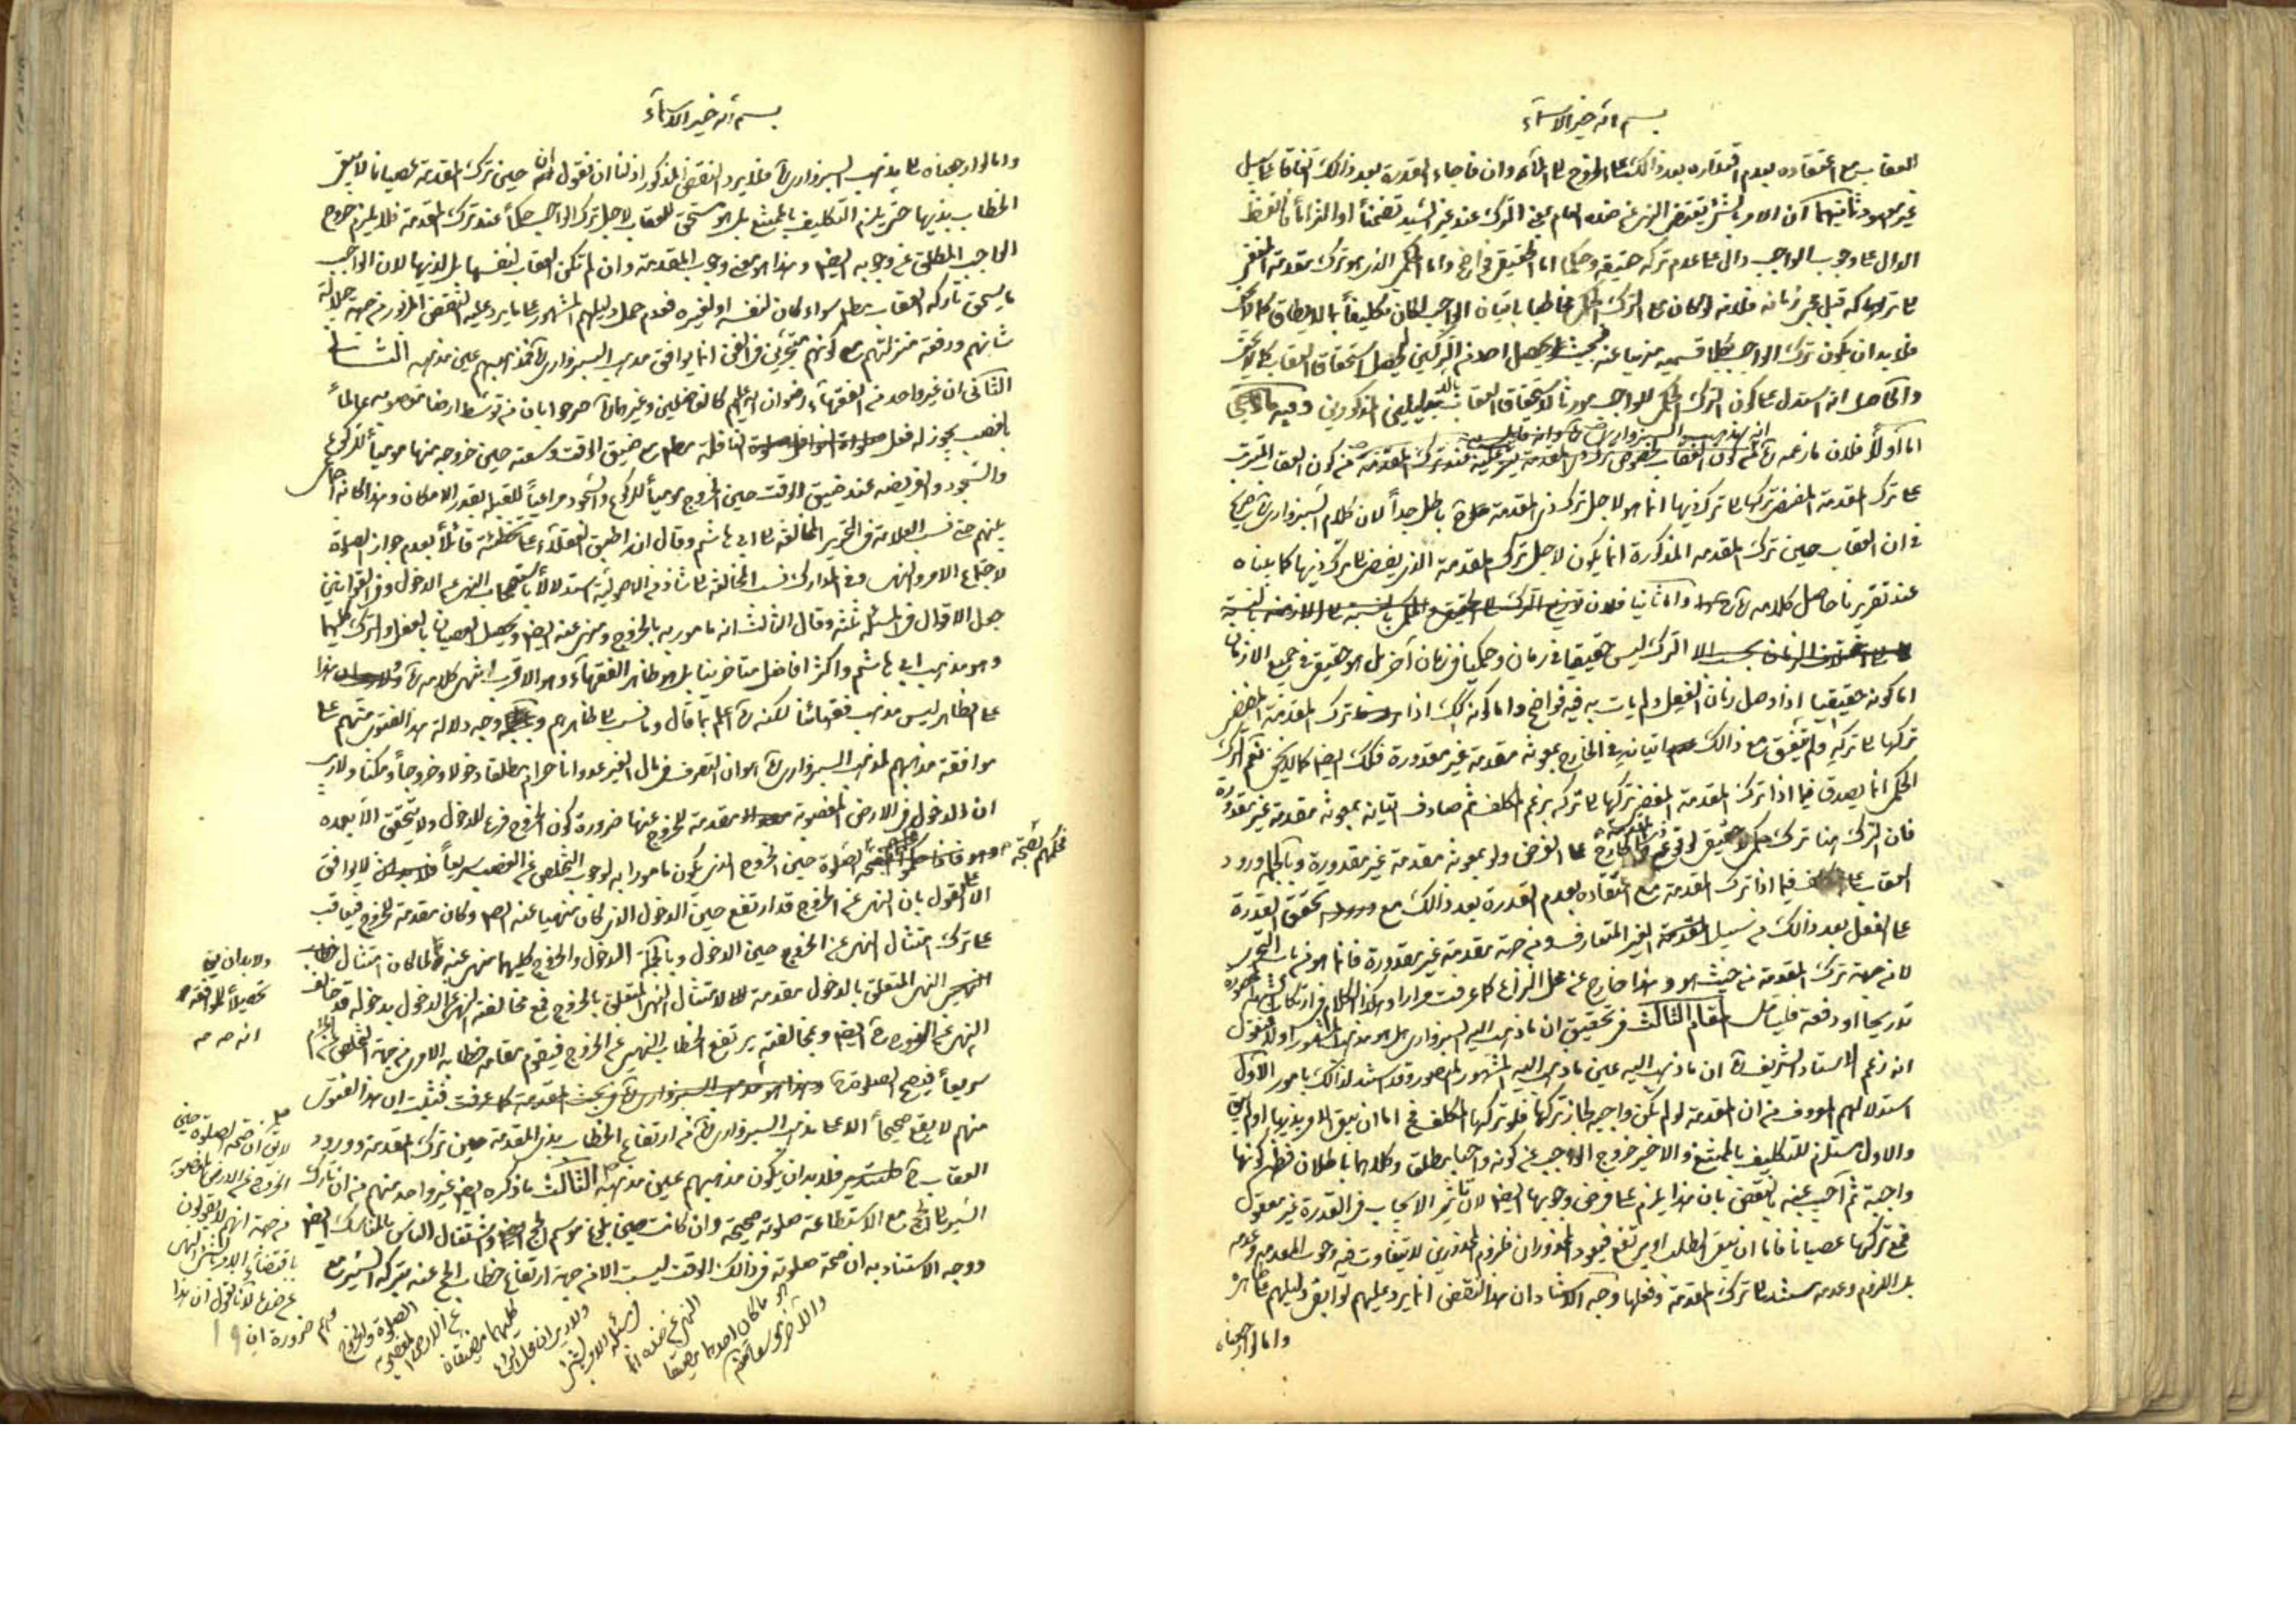 بسم الله خير الاسماء
العقاب مع اعتقاده بعدم اقتداره بعد ذالك على الخروج وان فاجاء القدرة بعد ذالك اتفاقا
غير معهود ثانيهما ان الامر بالشئ يقتضى النهى عن ضده العام بمعنى الترك عند غير السيد تضمنا او التزاما فاللفظ
الدال على وجوب الواجب دال على عدم تركه حقيقة وحكما اما الحقيقى فواضح واما الحكمى الذى هو ترك مقدمته المفضى
تركها الى تركه قبل مجئ زمانه فلانه لو كان مع الترك الحكمى مخاطبا باتيان الواجب لكان تكليفا بما لا يطاق
فلا بد ان يكون ترك الواجب بكلا قسميه منهيا عنه فيحصل استحقاق العقاب
والحاصل انه استدل على كون الترك الحكمى للواجب مورثا لاستحقاق العقاب بالدليلين المذكورين وفيه
اما اولا فلان ما زعمه من كون العقاب المترتب
على ترك المقدمة المفضى تركها الى ترك ذيها انما هو لاجل ترك ذى المقدمة باطل جدا لان كلام السبزوارى صريح
فى ان العقاب حين ترك المقدمة المذكورة انما يكون لاجل ترك المقدمة الذى يفضى الى ترك ذيها كما بيناه
عند تقريرنا حاصل كلامه واما ثانيا فلان
الترك ليس حقيقيا فى زمان وحكميا فى زمان آخر بل هو حقيقى فى جميع الازمان
اما كونه حقيقيا اذا وصل زمان الفعل ولم يات به فيه فواضح واما كونه كك اذا ترك المقدمة المفضى
تركها الى تركه ولم يتفق مع ذالك اتيانه فى الخارج بمعونة مقدمة غير مقدورة فكك ايضا كما لا يخفى نعم الترك
الحكمى انما يصدق فيما اذا ترك المقدمة المفضى تركها الى تركه بزعم المكلف ثم صادف اتيانه بمعونة مقدمة غير مقدورة
فان الترك هنا ترك حكمى لا حقيقى لوقوع فى الخارج على الفرض ولو بمعونة مقدمة غير مقدورة وبالجملة ورود
العقاب على المكلف فيما اذا ترك المقدمة مع اعتقاده بعدم القدرة بعد ذالك مع تحقق القدرة
على الفعل بعد ذالك من سبيل المقدمة الغير المتعارف ومن جهة مقدمة غير مقدورة فانما هو من باب التجرى
لا من جهة ترك المقدمة من حيث هو وهذا خارج عن محل النزاع كما عرفت مرارا وهكذا الكلام فى ارتكاب
تدريجا او دفعة فليتامل المقام الثالث فى تحقيق ان ما ذهب اليه السبزوارى هل هو مذهب المشهور او لا فنقول
انه زعم الاستاد الشريف ان ما ذهب اليه عين ما ذهب اليه المشهور المنصور وقد استند لذالك بامور الاول
استدلالهم المعروف من ان المقدمة لو لم يكن واجبة لجاز تركها فلو تركها المكلف فح اما ان يبقى الامر بذيها او لم يبق
والاول مستلزم للتكليف بالممتنع والاخير خروج الواجب عن كونه واجبا مطلقا وكلاهما باطلان فظهر كونها
واجبة ثم اجيب عنه بالنقض بان هذا يلزم على فرض وجوبها ايضا لان تاثير الايجاب فى القدرة غير معقول
فمع تركها عصيانا فاما ان يبقى الطلب او يرتفع فيعود المحذوران فلزوم المحذورين لا يتفاوت فيه وجوب المقدمة وعدمه
بل اللزوم وعدمه مستند الى ترك المقدمة وفعلها وجه الاستناد ان هذا النقض انما يرد عليهم لو ابقى دليلهم ظاهره
واما لو ارجعناه
بسم الله خير الاسماء
واما لو ارجعناه الى مذهب السبزوارى فلا يرد النقض المذكور اذ لنا ان نقول ان حين ترك المقدمة عصيانا لا يبقى
الخطاب بذيها حتى يلزم التكليف بالممتنع بل هو مستحق للعقاب لاجل ترك الواجب حكما عند ترك المقدمة فلا يلزم خروج
الواجب المطلق عن وجوبه ايضا وهذا هو معنى وجوب المقدمة وان لم تكن العقاب لنفسها بل لذيها لان الواجب
ما يستحق تاركه العقاب مطلقا سواء كان لنفسه او لغيره فعدم حمل دليلهم المشهور على ما يرد عليه النقض المزبور من جهة جلالة
شانهم ورفعة منزلتهم مع كونهم متبحرين فى الفن انما يوافق مذهب السبزوارى فمذهبهم عين مذهبه
الثانى ان غير واحد من الفقهاء رضوان الله عليهم كالفاضلين وغيرهما صرحوا بان من توسط ارضا مغصوبه عالما
بالغصب يجوز له فعل النافلة مطلقا مع ضيق الوقت وسعته حين خروجه منها موميا للركوع
والسجود والفريضه عند ضيق الوقت حين الخروج موميا للركوع والسجود مراعيا للقبلة بقدر الامكان وهذا كانه اجماعى
بينهم حتى نسب العلامة فى التحرير المخالفة الى ابى هاشم وقال ان اطبق العقلاء على تخطئته قائلا بعدم جواز الصلوة
لاجتماع الامر والنهى وفى المدارك نسب المخالفة الى شاذ من الاصوليين استدلالا باستصحاب النهى عن الدخول وفى القوانين
جعل الاقوال فى المسئلة ثلثة وقال الثالث انه مامور به بالخروج ومنهى عنه ايضا ويحصل العصيان بالفعل والترك كليهما
وهو مذهب ابى هاشم واكثر افاضل متاخرينا بل هو ظاهر الفقهاء وهو الاقرب انتهى كلامه
على الظاهر ليس مذهب فقهائنا لكنه اعلم بما قال وما نسب الى ظاهرهم ووجه دلالة هذا الفتوى منهم على
موافقة مذهبهم لمذهب السبزوارى هو ان التصرف فى مال الغير عدوانا حرام مطلقا دخولا وخروجا ومكثا ولا ريب
ان الدخول فى الارض المغصوبة مقدمة للخروج عنها ضرورة كون الخروج فرعا للدخول ولا يتحقق الا بعده
فحكمهم بصحة الصلوة حين الخروج الذى يكون مامورا به لوجوب التخلص عن الغصب سريعا لا يوافق
الا على القول بان النهى عن الخروج قد ارتفع حين الدخول الذى كان منهيا عنه ايضا وكان مقدمة للخروج فيعاقب
على ترك امتثال النهى عن الخروج حين الدخول وبالجملة الدخول والخروج كليهما منهى عنه لما كان امتثال
النهى المتعلق بالدخول مقدمة لامتثال النهى المتعلق بالخروج فمع مخالفته النهى عن الدخول بدخوله قد خالف
النهى عن الخروج ايضا وبمخالفته يرتفع الخطاب النهيى عن الخروج فيقوم مقامه خطاب الامر من جهة التخلص عن الحرام
سريعا فيصح الصلوة وهذا هو مذهب السبزوارى فى بحث المقدمة كما عرفت فثبت ان هذا الفتوى
منهم لا يقع صحيحا الا على مذهب السبزوارى من ارتفاع الخطاب بذى المقدمة حين ترك المقدمة وورود
العقاب فلا بد ان يكون مذهبهم عين مذهبه الثالث ما ذكره ايضا غير واحد منهم من ان تارك
السير الى الحج مع الاستطاعة صلوته صحيحة وان كانت حين بلوغ موسم الحج واشتغال الناس بالمناسك ايضا
ووجه الاستناد به ان صحة صلوته فى ذالك الوقت ليست الا من جهة ارتفاع خطاب الحج عنه بتركه السير مع
ولا بد ان يق
تحصيلا للموافقة
انه صه مه
لا يق ان صحة الصلوة حين
الخروج عن الارض المغصوبة
من جهة انهم لا يقولون
باقتضاء الامر بالشئ النهى
عن ضده لانا نقول ان هذا
منهم ضرورة ان
الصلوة والخروج
عن الارض المغصوبة
كليهما مضيقان
ولا ريب ان محل النزاع
فى مسئلة الامر بالشئ
النهى عن ضده انما
هو ما كان احدهما مضيقا
والآخر موسعا
19